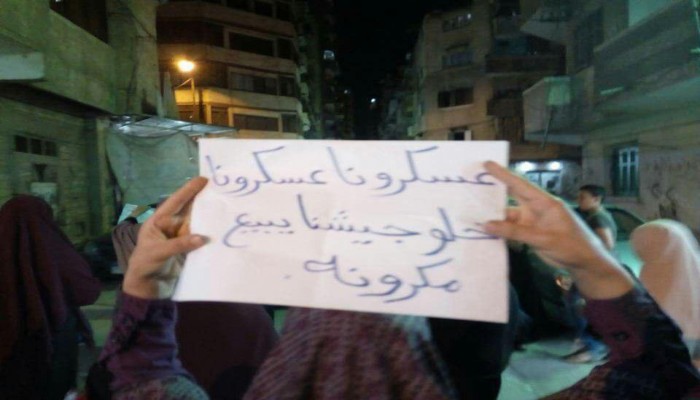 عسكرونا عسكرونا
خلو جيشنا يبيع
مكرونه.